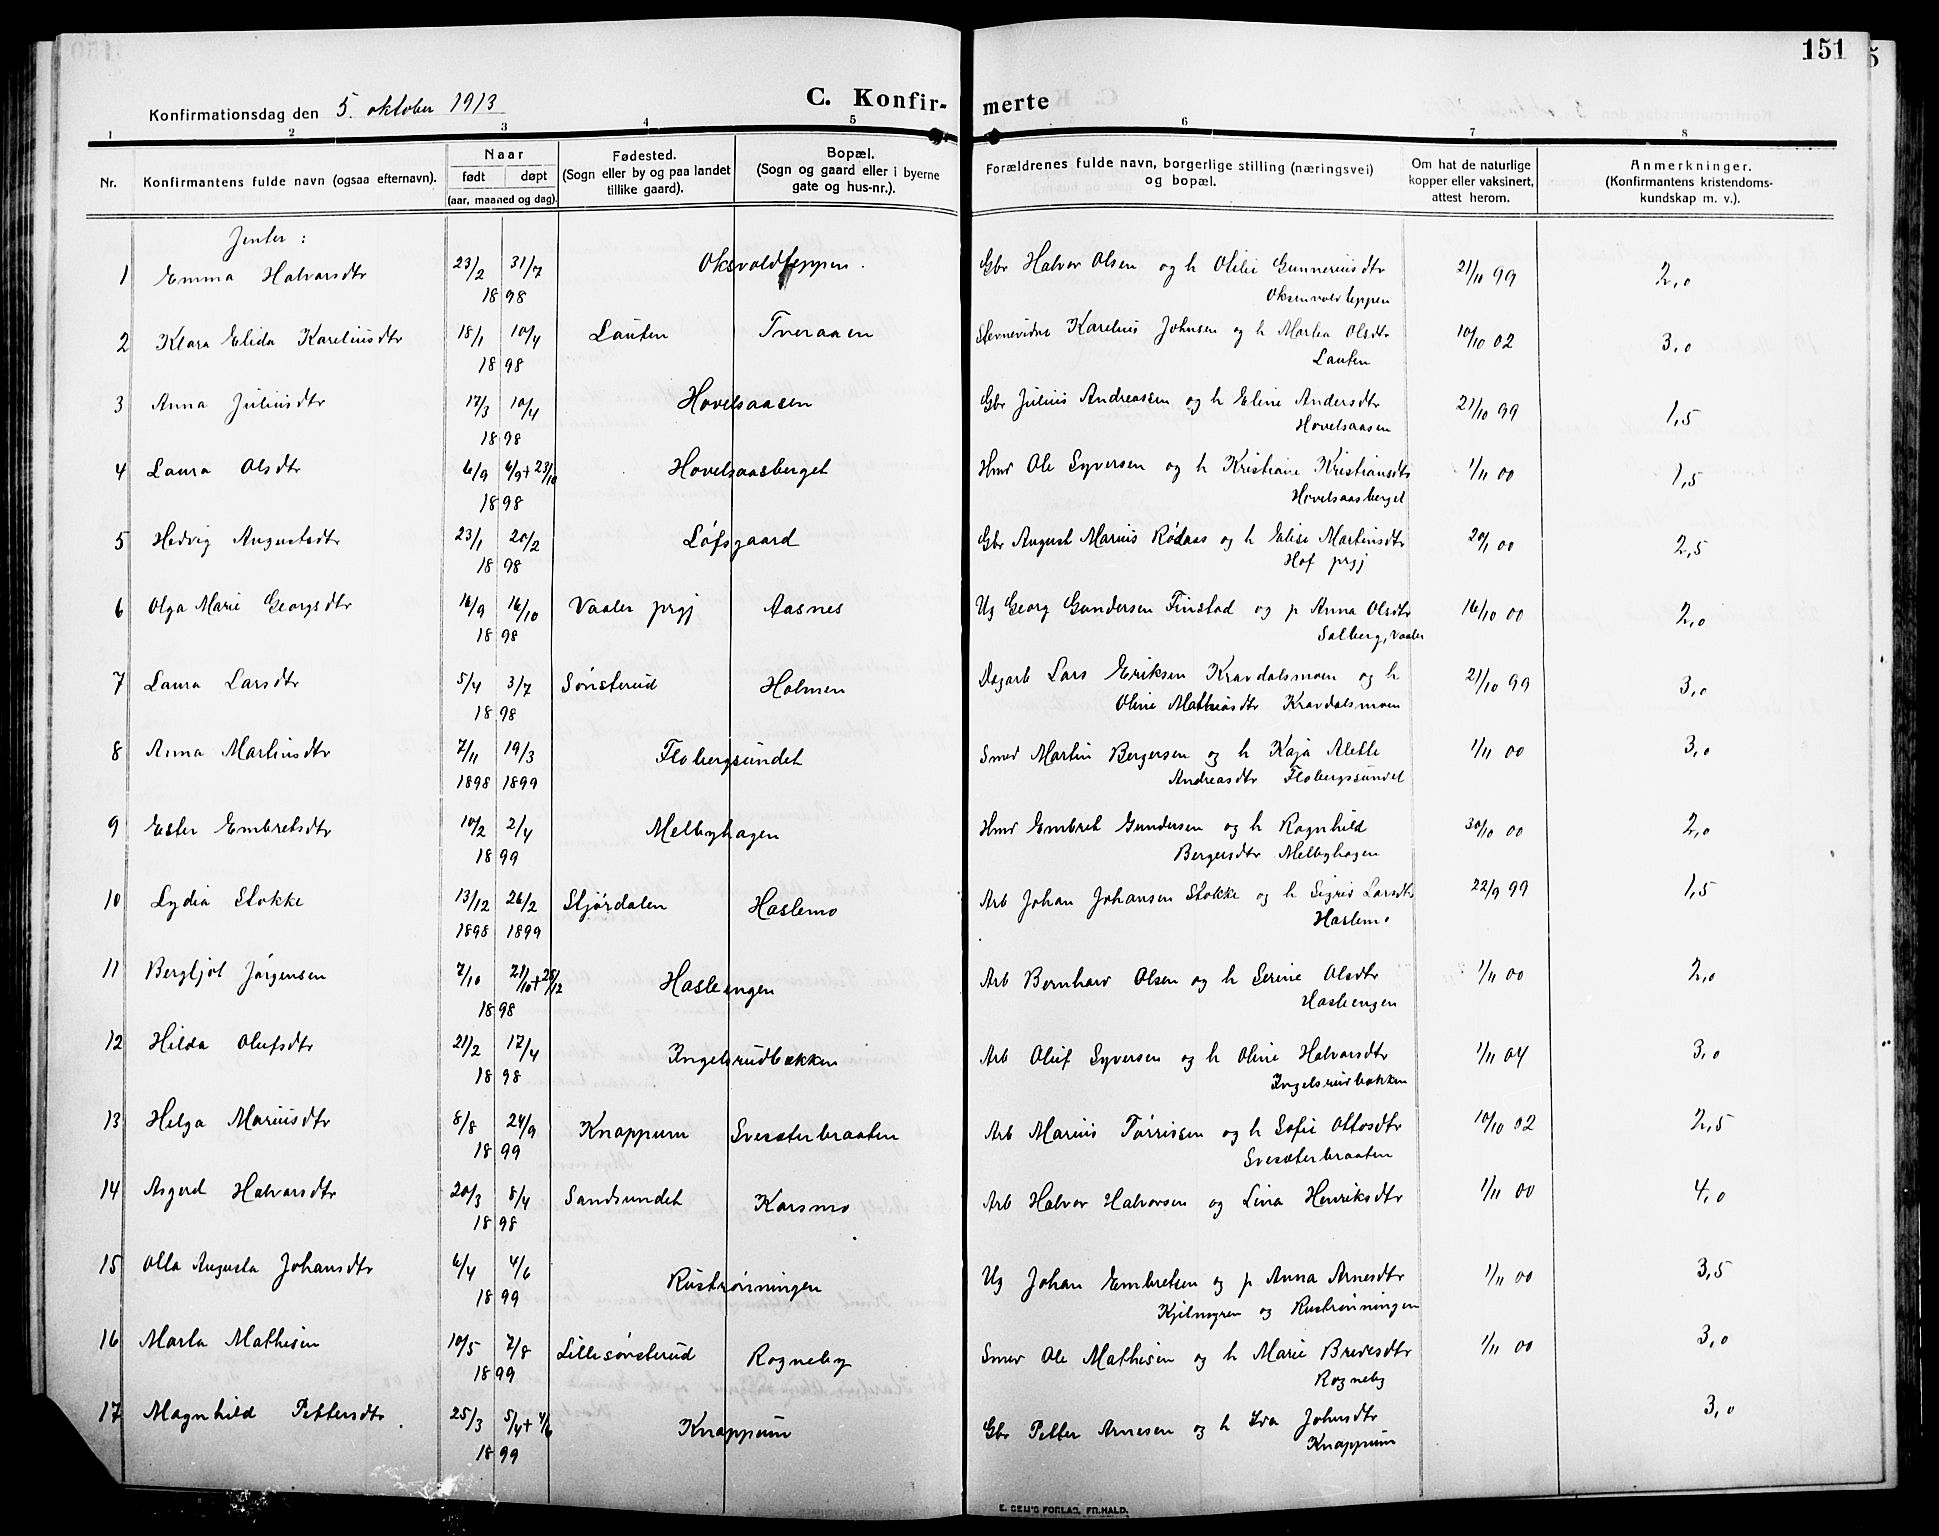 151
Konfirmationsdag den 5. oktober 1913
C. Konfir- merte
1 2 3 4 5 6 7 8
Nr. Konfirmantens fulde navn (ogsaa efternavn). Naar født døpt (aar, maaned og dag). Fødested. (Sogn eller by og paa landet tillike gaard). Bopæl. (Sogn og gaard eller i byerne gate og hus-nr.). Forældrenes fulde navn, borgerlige stilling (næringsvei) og bopæl. Om hat de naturlige kopper eller vaksinert, attest herom. Anmerkninger. (Konfirmantens kristendoms- kundskap m. v.).
Jenter :
1 Emma Halvorsdtr 23/2 31/7 Oksvoldteppen. Gbr Halvor Olsen og h Otilie Gunneriusdtr 21/10 99 2,0
1898 Oksenvoldteppen
2 Klara Elida Kareliusdtr 18/1 10/4 Lauten Tveraaen Stevnevidne Karelius Johnsen og h Martea Olsdtr 10/10 02 3,0
1898 Lauten
3 Anna Juliusdtr 17/3 10/4 Hovelsaasen Gbr Julius Andreassen og h Eline Andersdtr 21/10 99 1,5
1898 Hovelsaasen
4 Laura Olsdtr 6/9 6/9+23/10 Hovelsaasberget Hmd Ole Syversen og h Kristiane Kristiansdtr 1/11 00 1,5
1898 Hovelsaasberget
5 Hedvig Augustsdtr 23/1 20/2 Løfsgaard Gbr August Marius Rødaas og h Elise Martinsdtr 20/1 00 2,5
1898 Hof prgj
6 Olga Marie Georgsdtr 16/9 16/10 Vaaler prgj Aasnes Ug Georg Gundersen Finstad og p Anna Olsdtr 16/10 00 2,0
1898 Solberg, Vaaler
7 Laura Larsdtr 5/4 3/7 Sønsterud Holmen Dagarb Lars Eriksen Kravdalsmoen og h 21/10 99 3,0
1898 Oline Mathiasdtr Kravdalsmoen
8 Anna Martinsdtr 7/11 19/3 Flobergsundet Smed Martin Bergersen og h Kaja Alette 1/11 00 3,0
1898 1899 Andreasdtr Flobergsundet
9 Ester Embretsdtr 10/2 2/4 Melbyhagen Hmd Embret Gundersen og h Ragnhild 30/10 00 2,0
1899 Bergersdtr Melbyhagen
10 Lydia Stokke 13/12 26/2 Stjørdalen Haslemo Arb Johan Johansen Stokke og h Sigrid Larsdtr 22/9 99 1,5
1898 1899 Haslemo
11 Bergljot Jørgensen 7/10 21/10+25/12 Hasleengen Arb Bernhard Olsen og h Serine Olsdtr 1/11 00 2,0
1898 Hasleengen
12 Hilda Olufsdtr 21/2 17/4 Ingelsrudbækken Arb Oluf Syversen og h Oline Halvorsdtr 1/11 04 3,0
1898 Ingelsrudbækken
13 Helga Mariusdtr 8/8 24/9 Knappum Svesæterbraaten Arb Marius Tørrissen og h Sofie Ottosdtr 10/10 02 2,5
1899 Svesæterbraaten
14 Asgerd Halvorsdtr 20/3 8/4 Sandsundet Karsmo Arb Halvor Halvorsen og Lina Henriksdtr 1/11 00 4,0
1898
15 Olla Augusta Johansdtr 6/4 4/6 Rustrønningen Ug Johan Embretsen og p Anna Arnesdtr 1/11 00 3,5
1899 Kjølmyren og Rustrønningen
16 Marta Mathisen 10/5 7/8 Lillesønsterud Rogneby Smed Ole Mathisen og h Marie Bredesdtr 1/11 00 3,0
1899 Rogneby
17 Magnhild Pettersdtr. 25/3 5/4+4/6 Knappum Gbr Petter Arnesen og h Eva Johnsdtr 3,0
1899 Knappum
E. SEM'S FORLAG, FR.HALD.